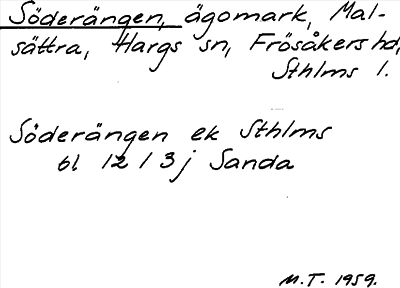 Söderängen, ägomark, Mal-
sättra, Hargs sn, Frösåkers hd,
Sthlms l.
Söderängen ek Sthlms
bl 12 I 3 j Sanda
M.T. 1959.